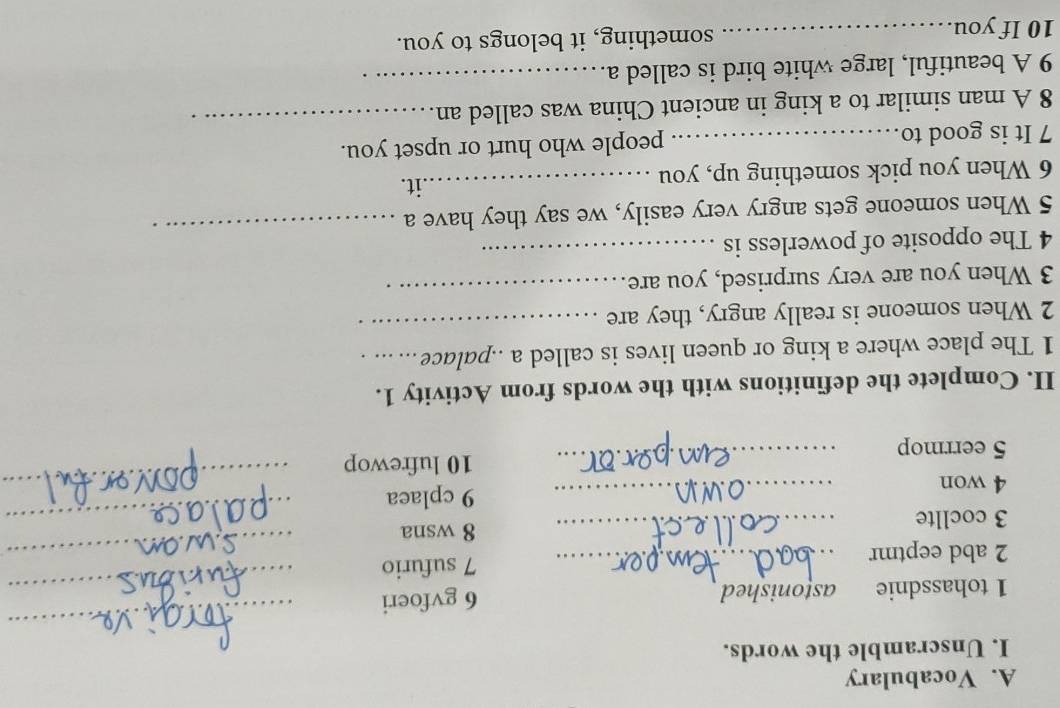 A. Vocabulary
I. Unscramble the words.
1 tohassdnie astonished 6 gvfoeri forgive
2 abd eeptmr bad temper 7 sufurio furious
3 cocllte collect 8 wsna swan
4 won own 9 cplaea palace
5 eerrmop emperor 10 lufrewop poworful
II. Complete the definitions with the words from Activity 1.
1 The place where a king or queen lives is called a ..palace... ... .
2 When someone is really angry, they are .............................. .
3 When you are very surprised, you are.............................. .
4 The opposite of powerless is ..............................
5 When someone gets angry very easily, we say they have a .............................. .
6 When you pick something up, you ..............................it.
7 It is good to.............................. people who hurt or upset you.
8 A man similar to a king in ancient China was called an.............................. .
9 A beautiful, large white bird is called a.............................. .
10 If you.............................. something, it belongs to you.